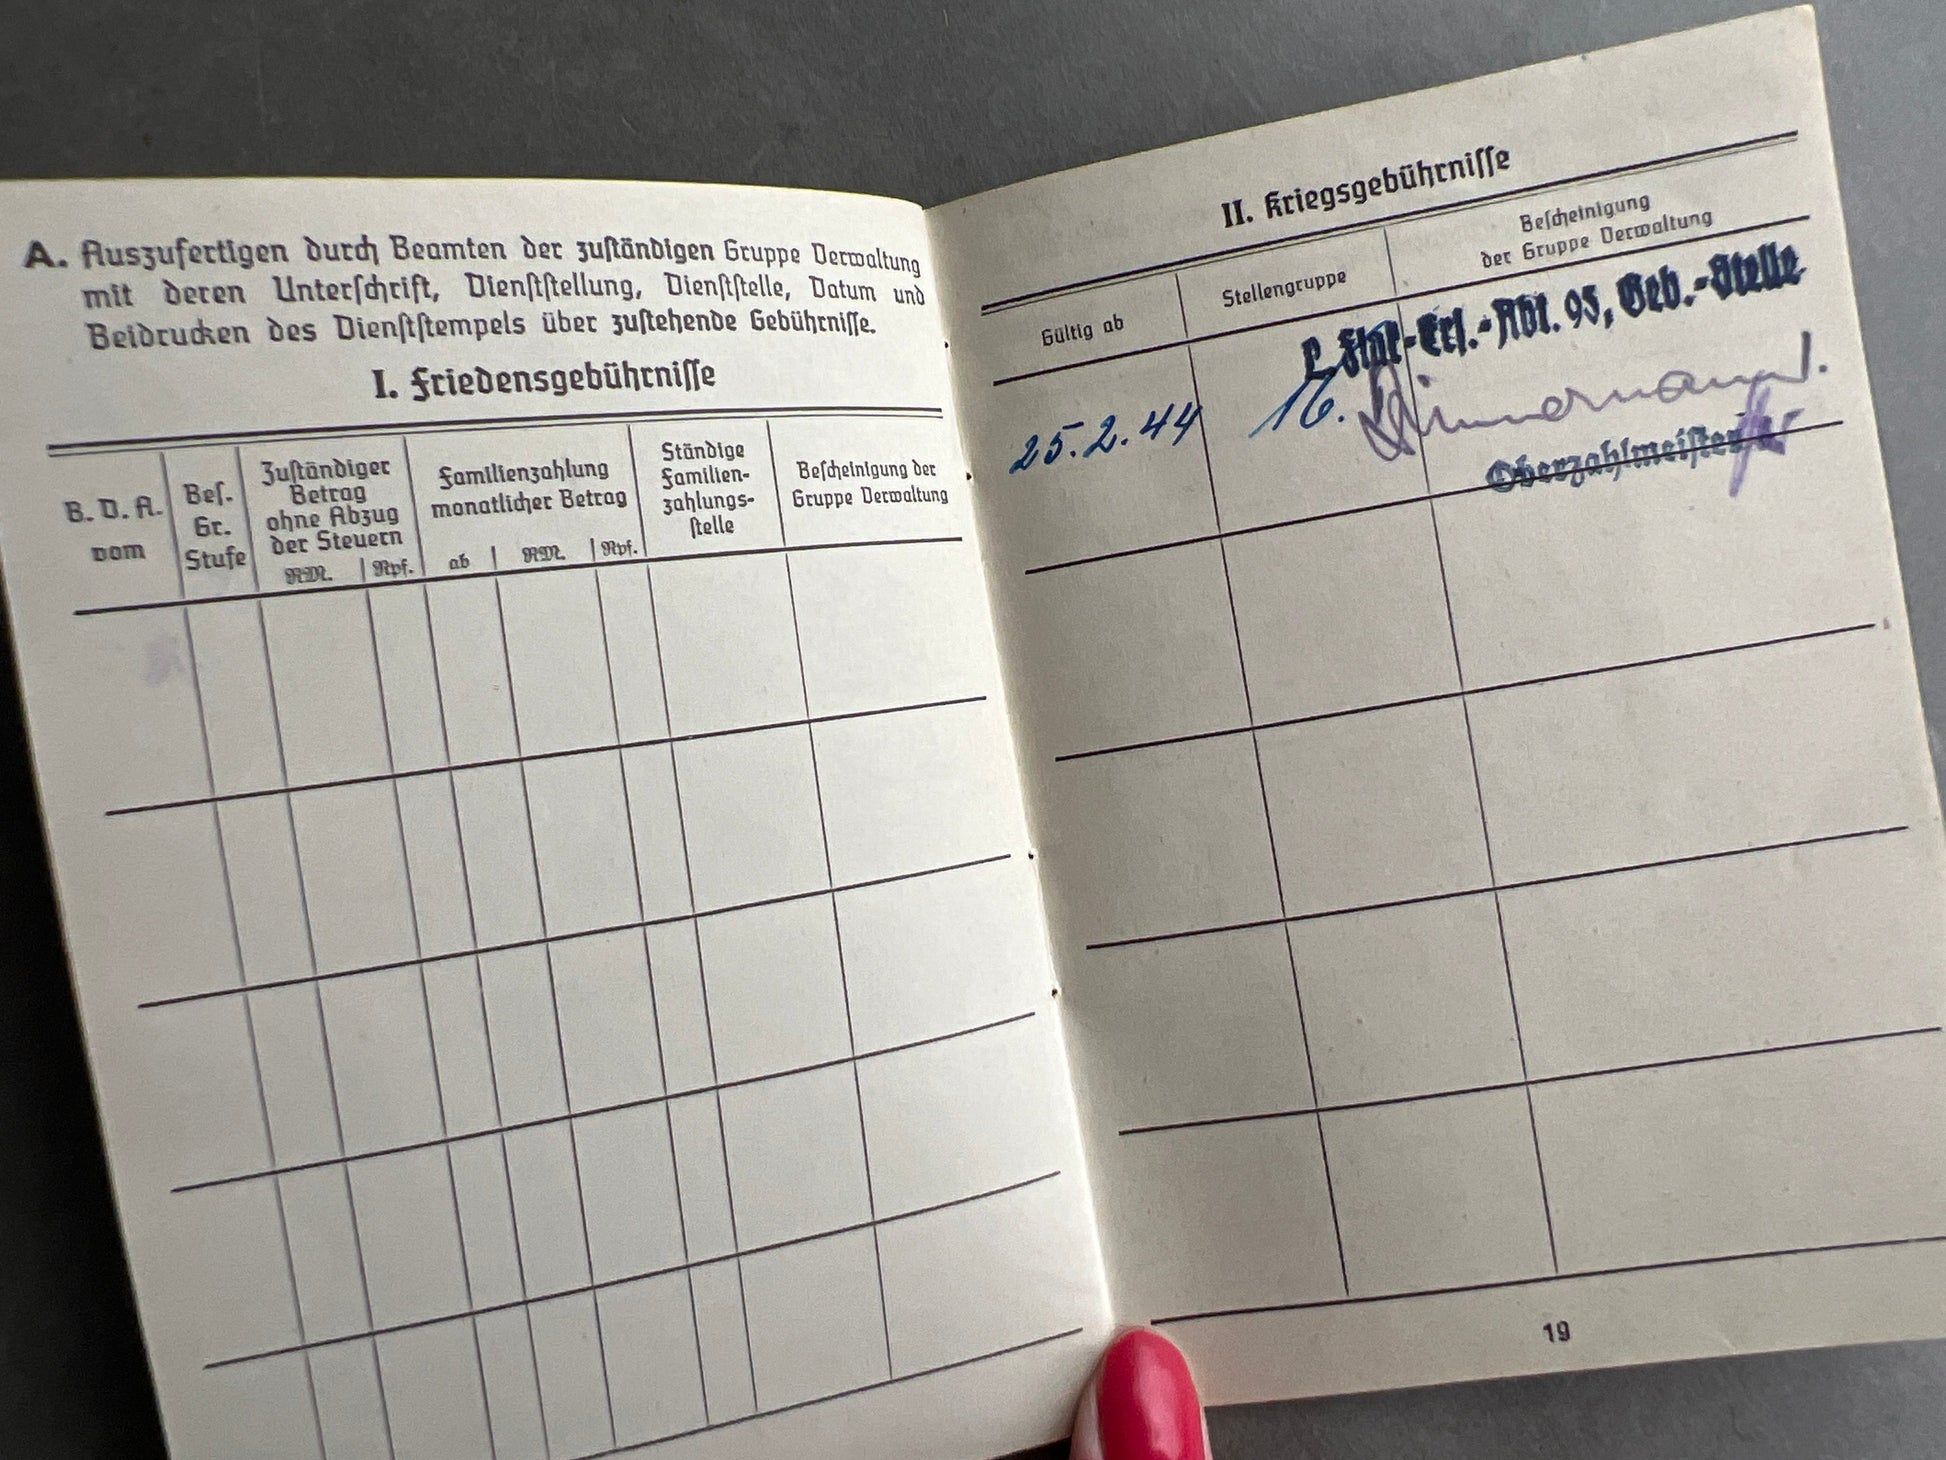 A. Auszufertigen durch Beamten der zuständigen Gruppe Verwaltung
mit deren Unterschrift, Dienststellung, Dienststelle, Datum und
Beidrucken des Dienststempels über zustehende Gebührnisse.
I. Friedensgebührnisse
B. D. A.
vom
Bes.
Gr.
Stufe
Zuständiger
Betrag
ohne Abzug
der Steuern
RM. Rpf.
Familienzahlung
monatlicher Betrag
ab RM. Rpf.
Ständige
Familien-
zahlungs-
stelle
Bescheinigung der
Gruppe Verwaltung
II. Kriegsgebührnisse
Gültig ab
Stellengruppe
Bescheinigung
der Gruppe Verwaltung
L. Flak-Ers.-Abt. 95, Geb.-Stelle
25.2.44
16.
Oberzahlmeister
19